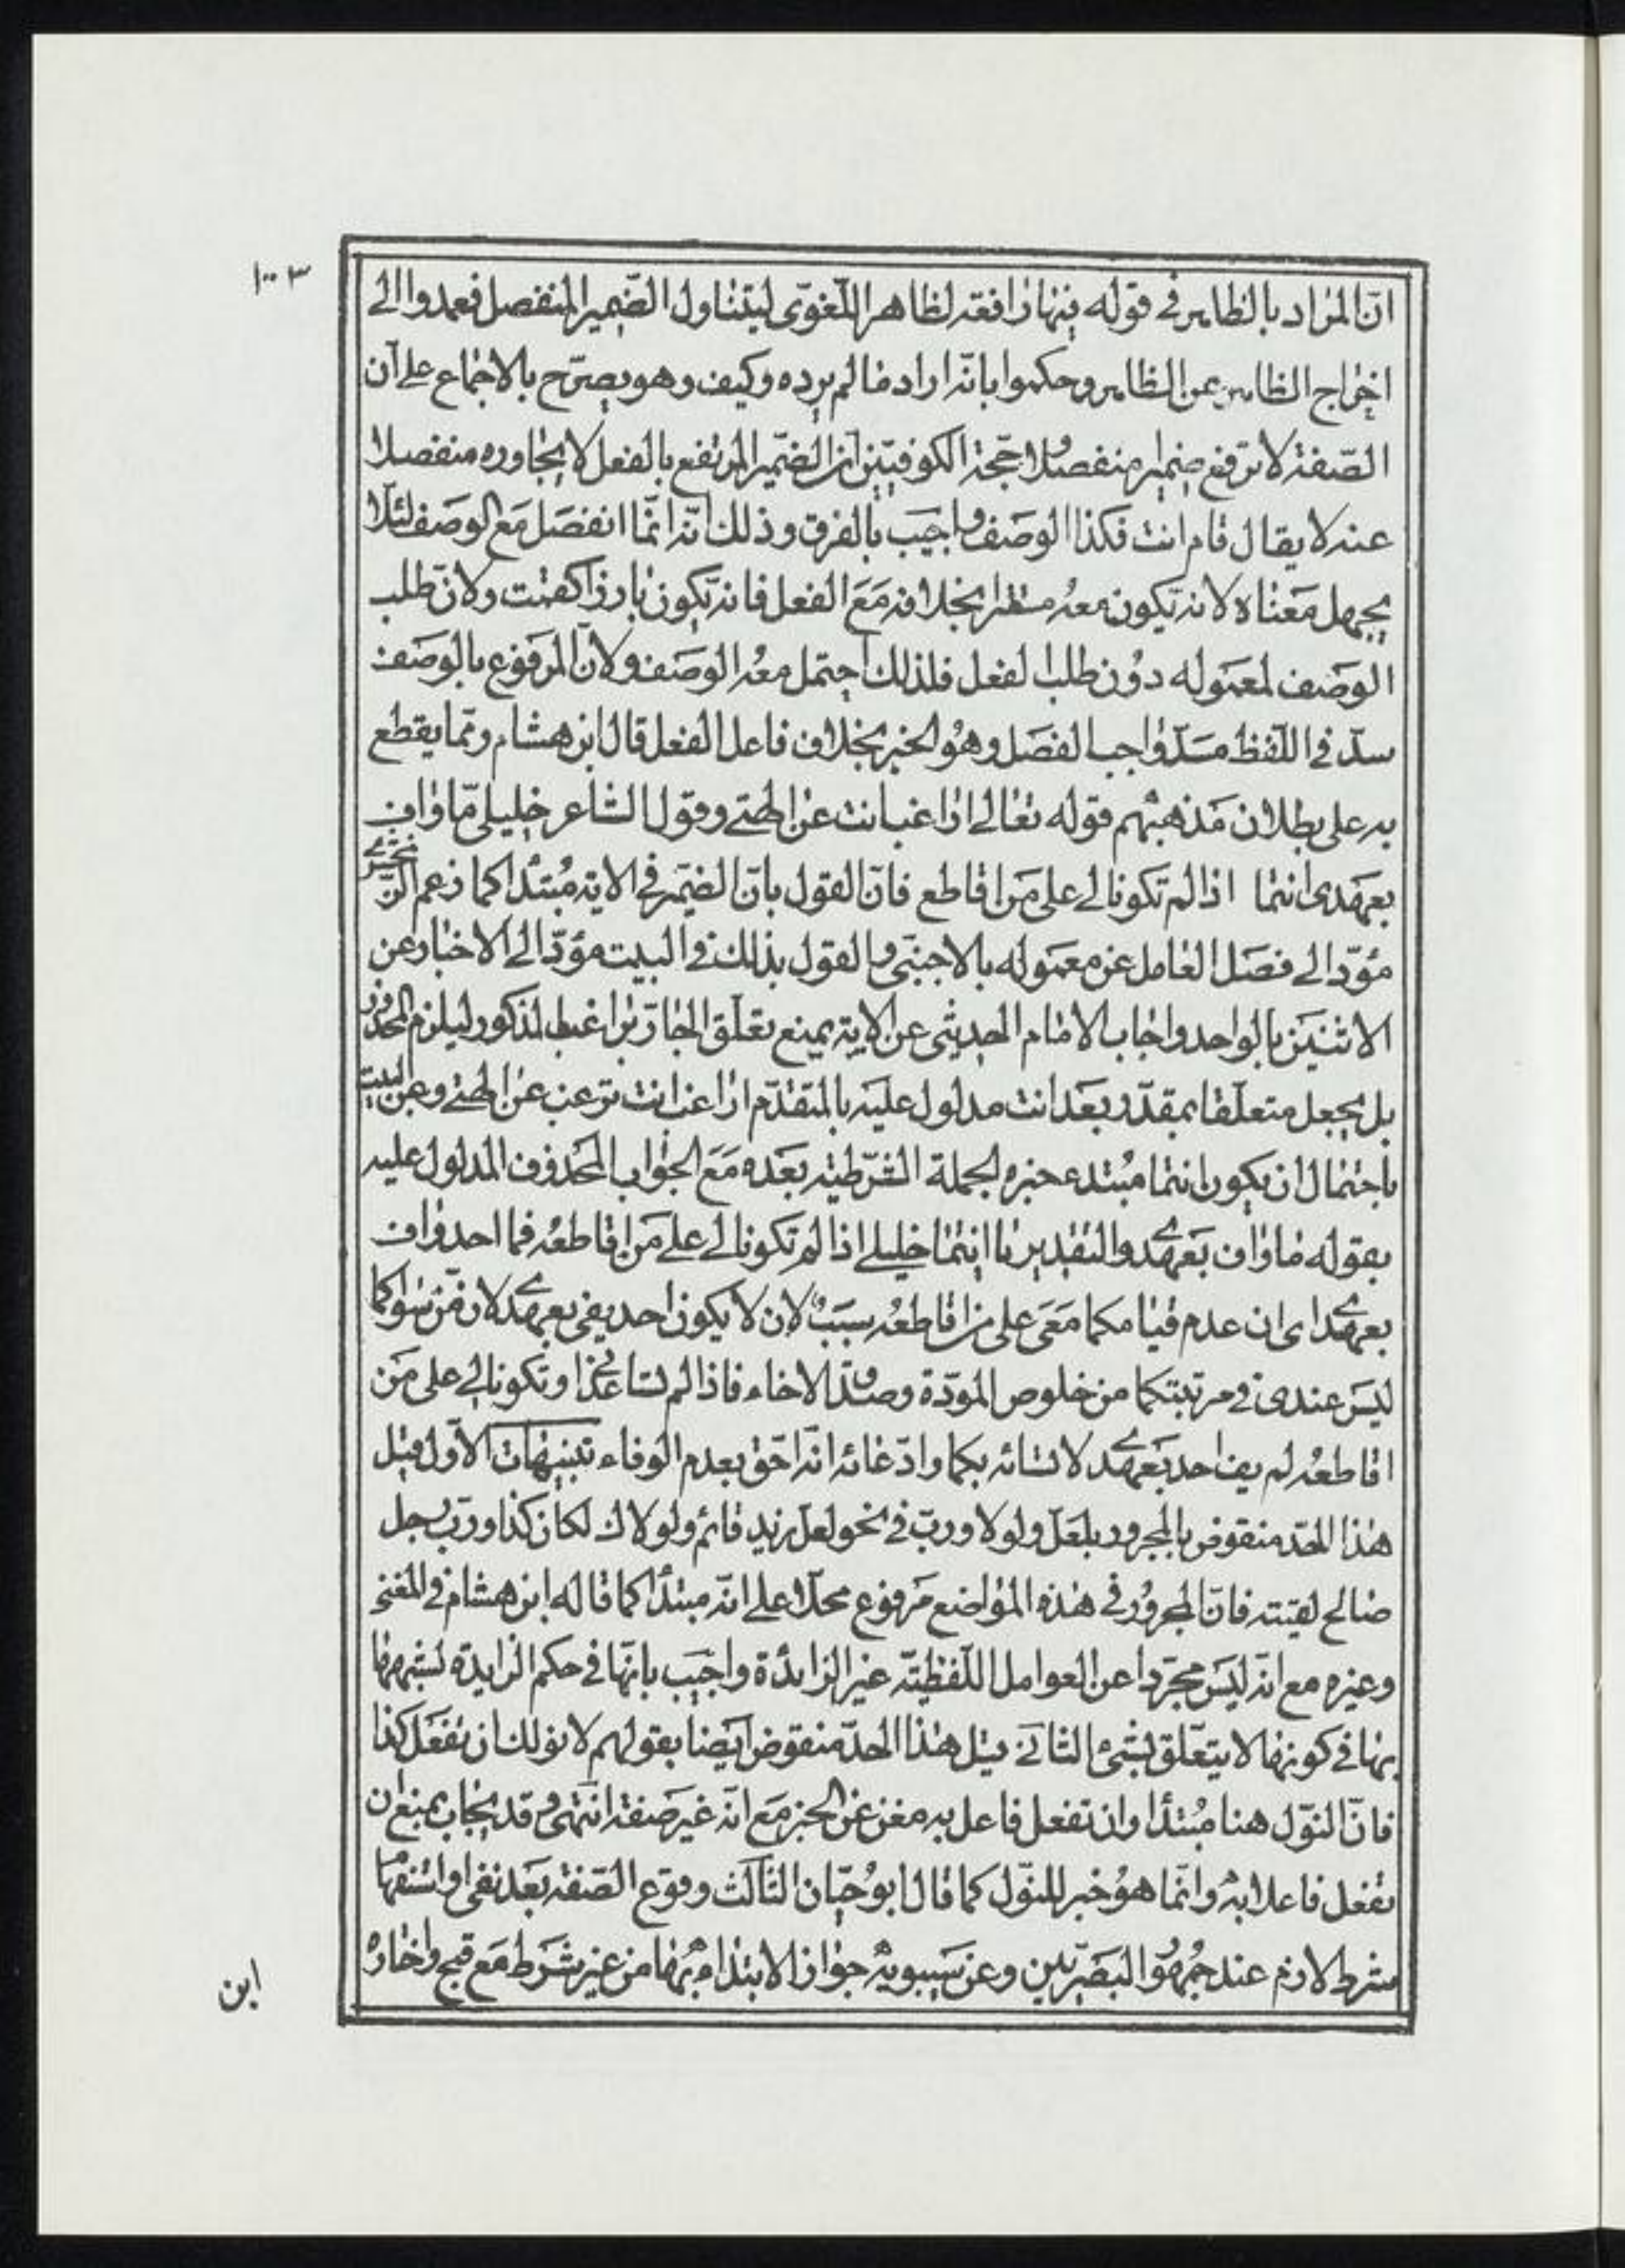 ١٠٣
انّ المراد بالظاهر في قوله فيهما رافعة لظاهر اللّغويّ ليتناول الضّمير المنفصل فعمدوا الى
اخراج الظاهر عن الظاهر وحكموا بانّه اراد ما لم يرده وكيف وهو يصرّح بالاجماع على أن
الصّفة لا ترفع ضميرا منفصلا وحجّة الكوفيّين ان الضّمير المرتفع بالفعل لا يجاوره منفصلا
عنه لا يقال قام انت فكذا الوصف واجيب بالفرق وذلك انّه انّما انفصل مع الوصف لئلّا
يجهل معناه لانه يكون معه مستترا بخلافه مع الفعل فانه يكون بارزا كقمت ولانّ طلب
الوصف لمعموله دون طلب الفعل فلذلك احتمل معه الوصف ولانّ المرفوع بالوصف
سدّ في اللّفظ مسدّ واجب الفصل وهو الخبر بخلاف فاعل الفعل قال ابن هشام وممّا يقطع
به على بطلان مذهبهم قوله تعالى اراغب انت عن الهتى وقول الشاعر خليلىّ ما واف
بعهدى انتما اذا لم تكونا لى على من اقاطع فانّ القول بانّ الضّمير في الاية مبتدأ كما زعم الزّمخشرى
مؤدّ الى فصل العامل عن معموله بالاجنبّى والقول بذلك في البيت مؤدّ الى الاخبار عن
الاثنين بالواحد واجاب الامام الحديثى عن الاية بمنع تعلّق الجارّ براغب المذكور ليلزم المحذور
بل يجعل متعلّقا بمقدّر بعد انت مدلول عليه بالمتقدّم اراغب انت ترغب عن الهتى وعن البيت
باحتمال ان يكون انتما مبتدء خبره الجملة الشّرطيّه بعده مع الجواب المحذوف المدلول عليه
بقوله ما واف بعهدى والتقدير يا انتما خليلى اذا لم تكونا لى على من اقاطعه فما احد واف
بعهدى اى ان عدم قيامكما معى على من اقاطعه سبب لان لا يكون احد يفى بعهدى لان من سواكما
ليس عندى في مرتبتكما من خلوص المودّة وصدق الاخاء فاذا لم تساعدانى وتكونا لى على من
اقاطعه لم يف احد بعهدى لانسائه بكما وادّعائه انّه احقّ بعدم الوفاء تنبيهات الاوّل قيل
هذا الحدّ منقوض بالمجرور بلعلّ ولولا وربّ في نحو لعلّ زيد قائم ولولاك لكان كذا وربّ رجل
صالح لقيته فانّ المجرور في هذه المواضع مرفوع محلّا على انّه مبتدأ كما قاله ابن هشام في المغنى
وغيره مع انّه ليس مجرّدا عن العوامل اللّفظيّه غير الزائدة واجيب بانّها في حكم الزايدة لشبهها
بها في كونها لا يتعلّق بشىء الثانى قيل هذا الحدّ منقوض ايضا بقولهم لا نولك ان تفعل كذا
فانّ النوّل هنا مبتدأ وان تفعل فاعل به مغن عن الخبر مع انّه غير صفة انتهى وقد يجاب بمنع ان
تفعل فاعلا به وانّما هو خبر للنوّل كما قال ابو حيّان الثالث وقوع الصّفة بعد نفى او استفهام
شرط لازم عند جمهور البصريّين وعن سيبويه جواز الابتداء بها من غير شرط مع قبح واختاره
ابن